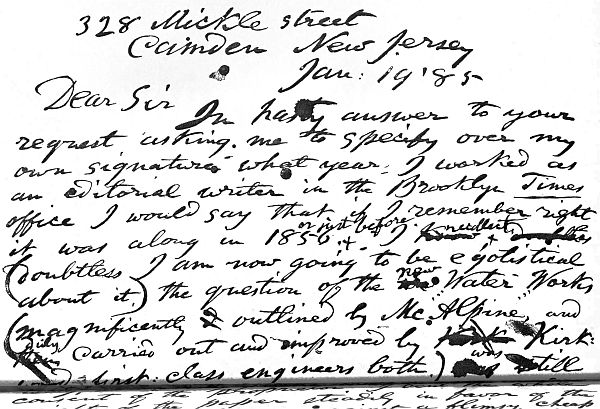 328 Mickle street
Camden New Jersey
Jan: 19 '85
Dear Sir
In hasty answer to your
request asking me to specify over my
own signature what year I worked as
an editorial writer in the Brooklyn Times
office I would say that if I remember right
it was along in 1856, or just before. I recollect
(doubtless I am now going to be egotistical
about it,) the question of the new Water Works
(magnificently outlined by Mc.Alpine, and
duly carried out and improved by Kirk-
wood first-class engineers both,) was still
the paper steadily in favor of the